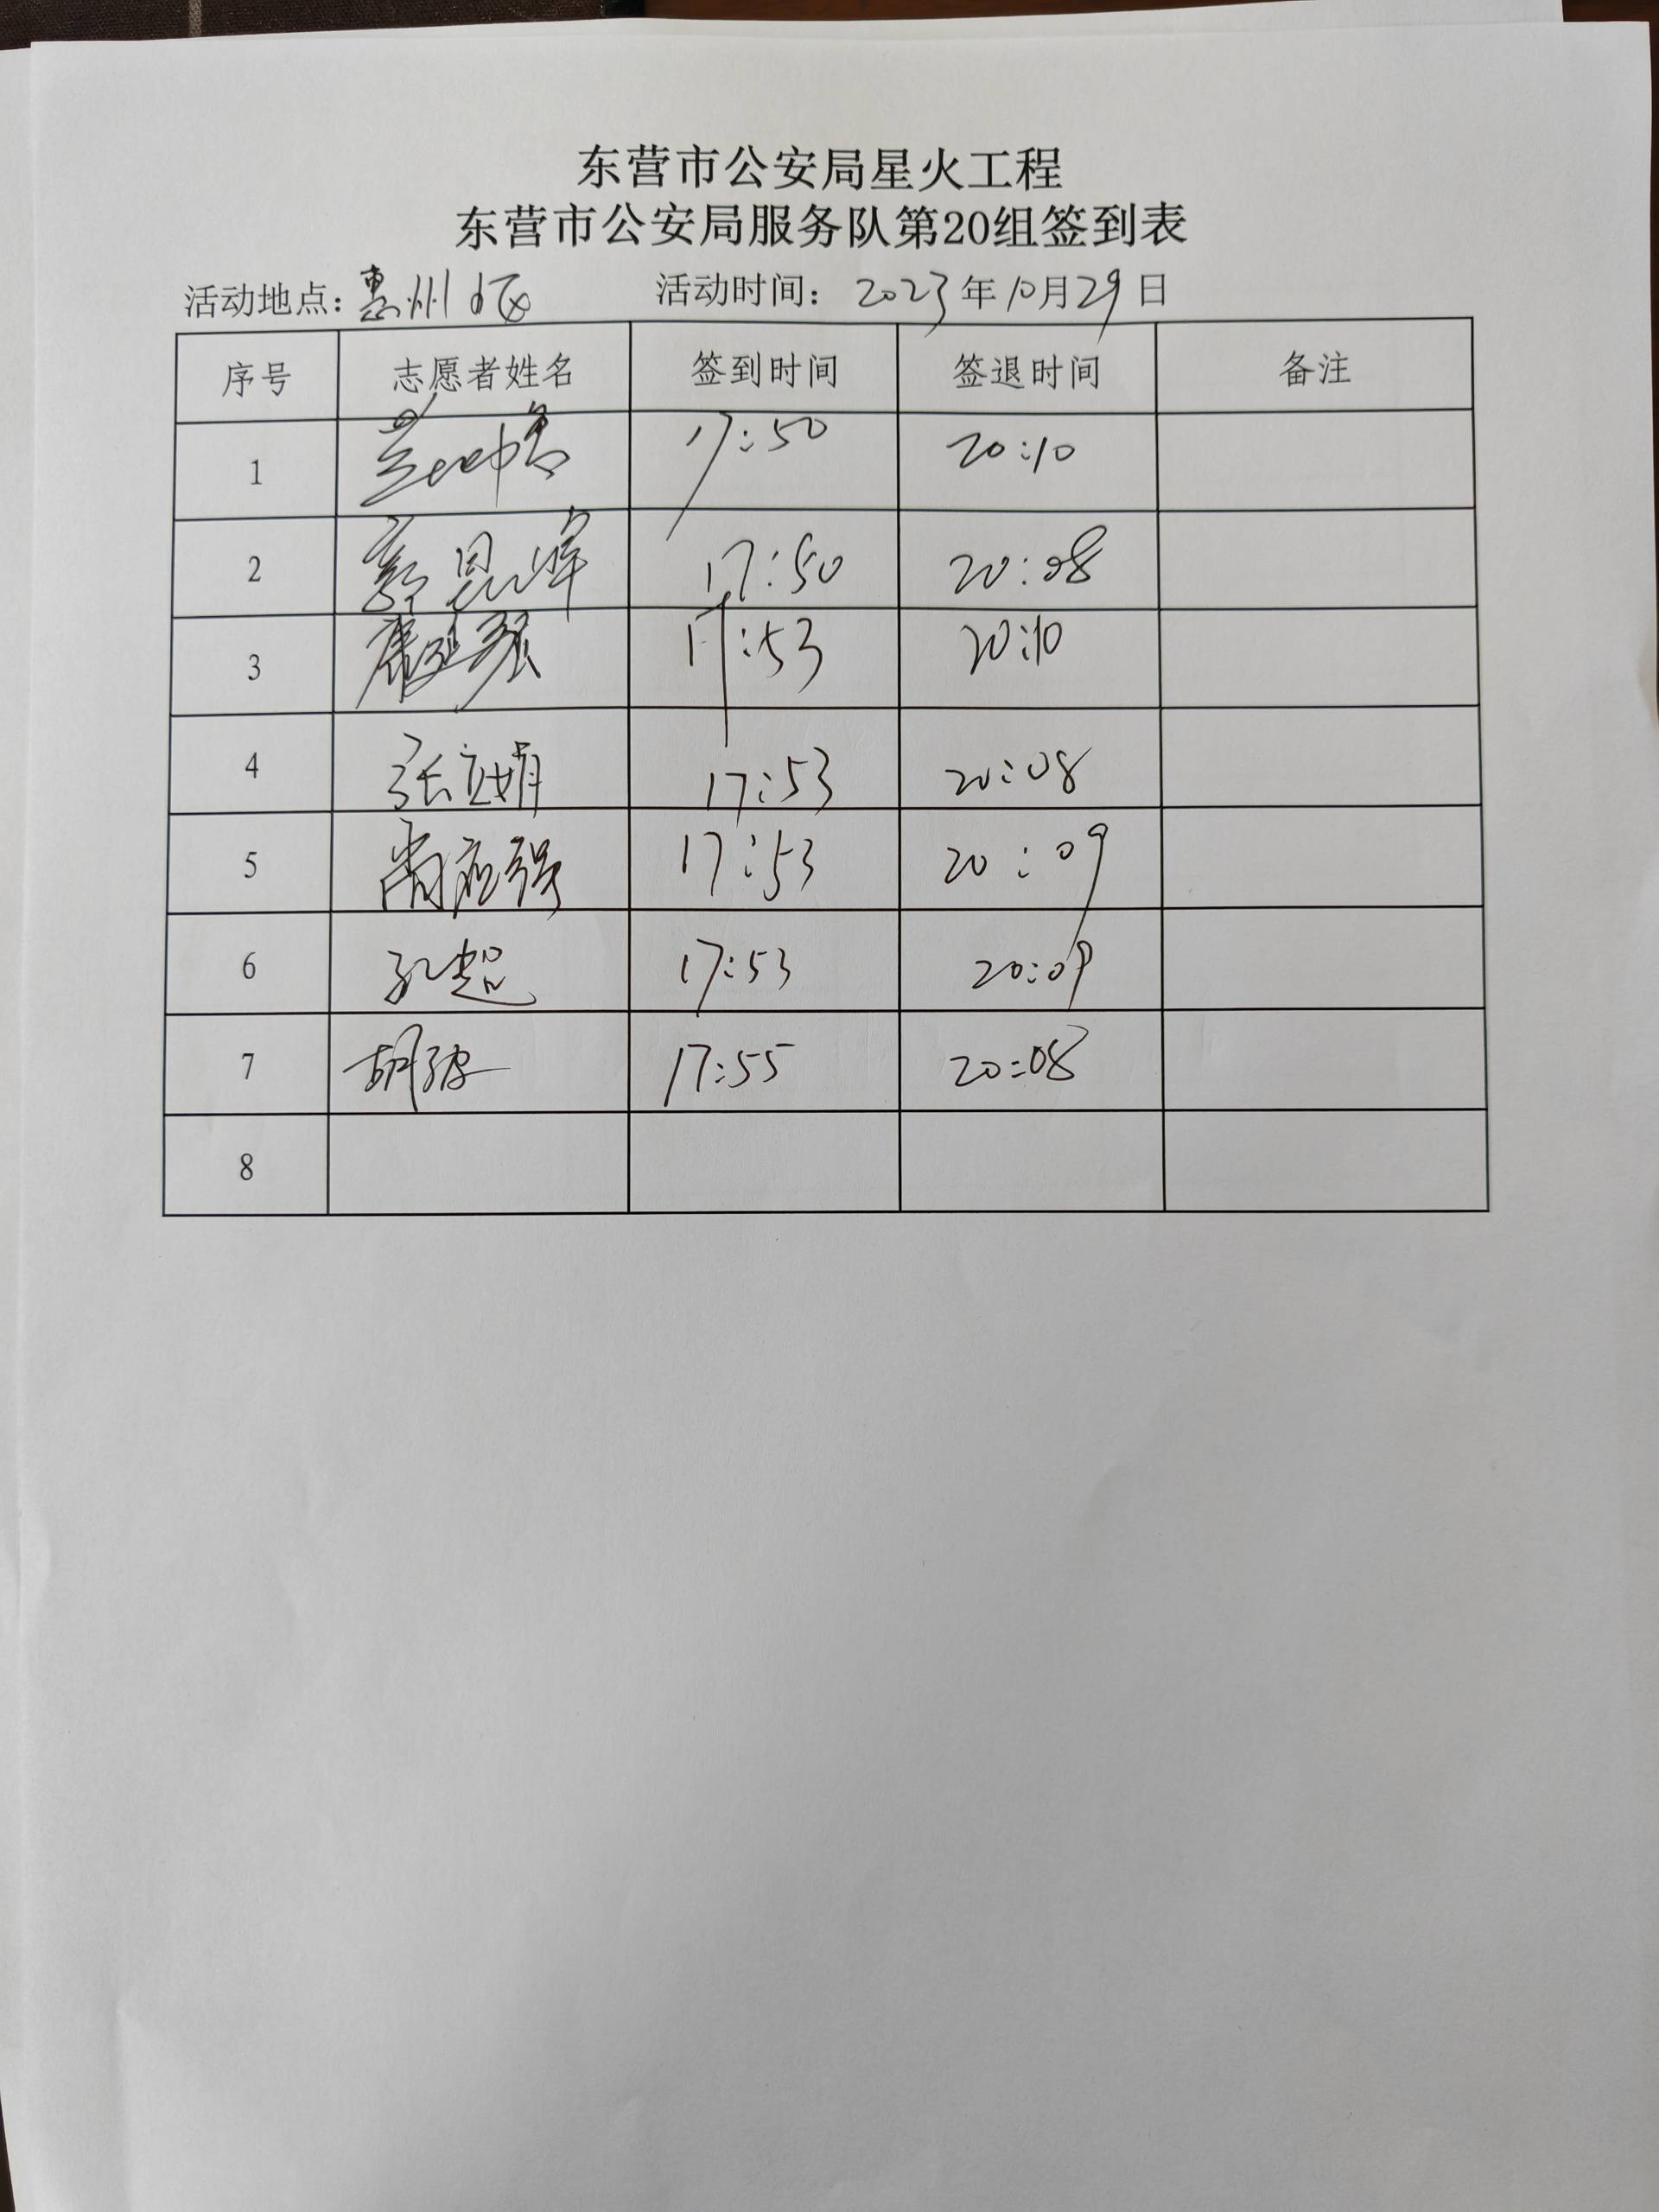 东营市公安局星火工程
东营市公安局服务队第20组签到表
活动地点：惠州小区 活动时间：2023年10月29日
序号 志愿者姓名 签到时间 签退时间 备注
1 17:50 20:10
2 郭昆峰 17:50 20:08
3 17:53 20:10
4 张立娟 17:53 20:08
5 尚应强 17:53 20:09
6 孔超 17:53 20:09
7 胡 17:55 20:08
8